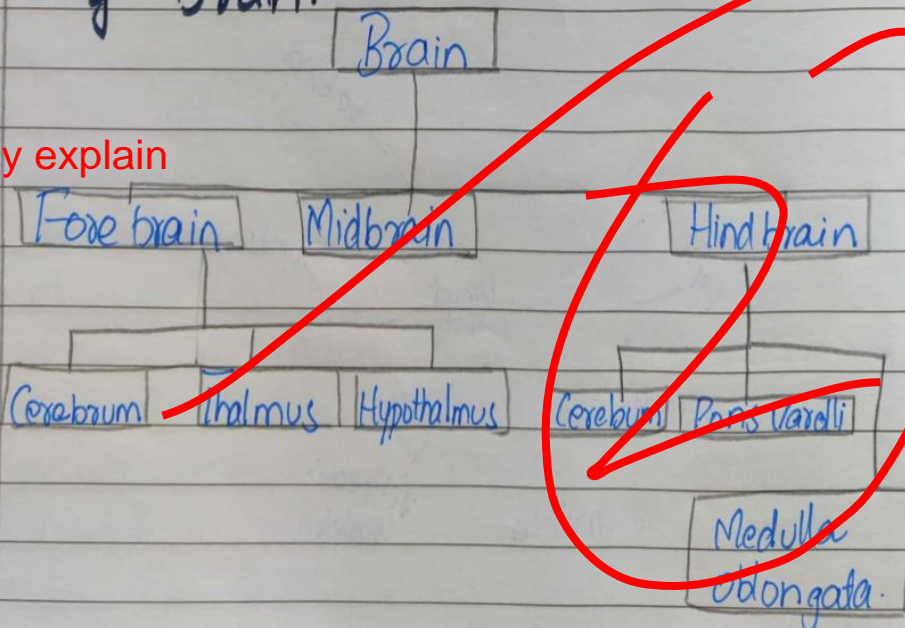 g Brain.
Brain
y explain
Fore brain Midbrain Hindbrain
Cerebrum Thalmus Hypothalmus Cerebum Pons Varolli
Medulla
Oblongata.
2